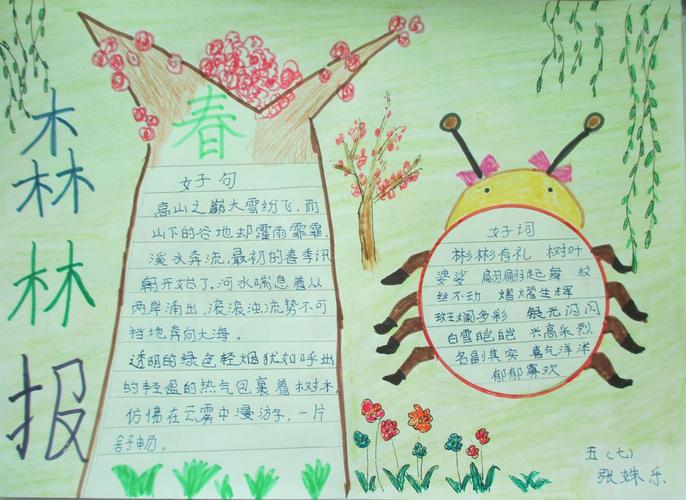 森
林
报
春
好句
高山之巅大雪纷飞，而
山下的谷地却霪雨霏霏，
溪水奔流，最初的春季汛
期开始了。河水喘息着从
两岸涌出，滚滚浊流势不可
挡地奔向大海。
透明的绿色轻烟犹如呼出
的轻盈的热气包裹着树木，
仿佛在云雾中漫游，一片
舒畅。
好词
彬彬有礼 树叶
婆娑 翩翩起舞 纹
丝不动 熠熠生辉
斑斓多彩 银光闪闪
白雪皑皑 兴高采烈
名副其实 喜气洋洋
郁郁寡欢
五（七）
张姝乐